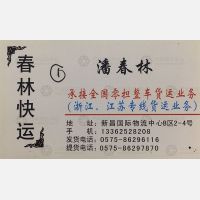 春林快运
①
潘春林
承接全国零担整车货运业务
(浙江、江苏专线货运业务)
地址:新昌国际物流中心8区2-4号
手机:13362528208
发货电话:0575-86296116
提货电话:0575-86297870